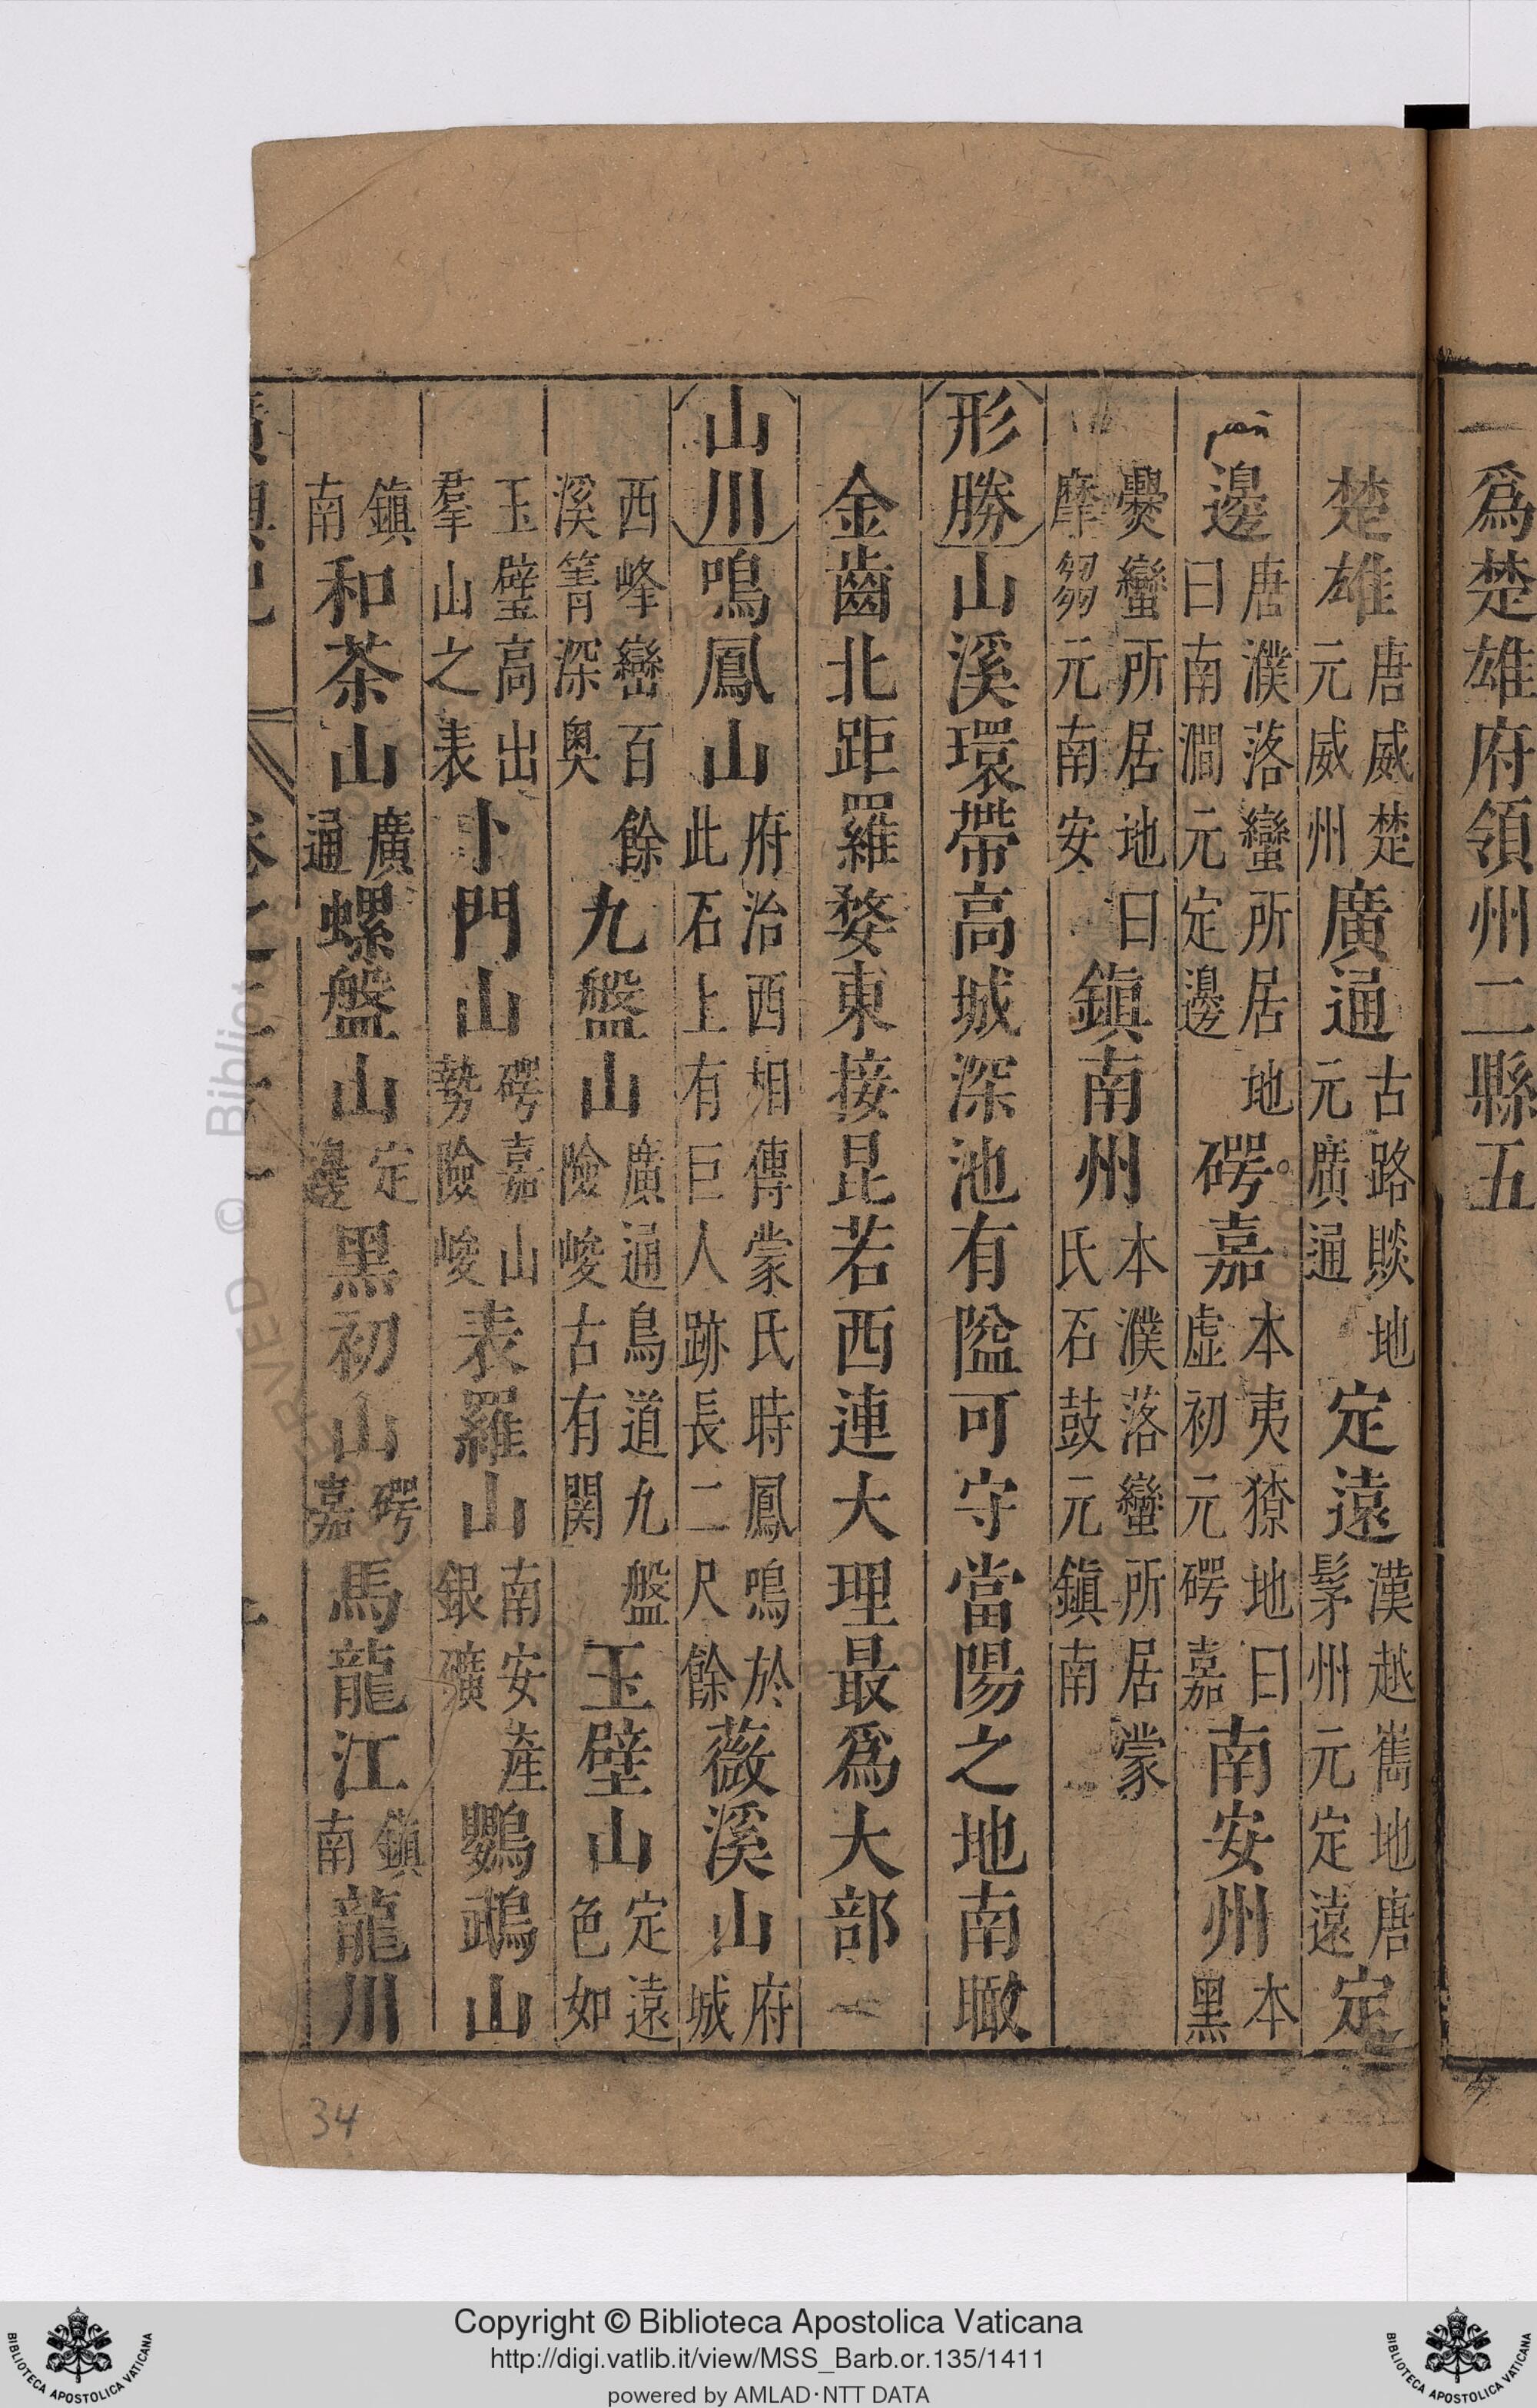 一爲楚雄府領州二縣五
楚雄唐威楚元威州廣通古路賧地元廣通定遠漢越嶲地唐髳州元定遠定
邊唐濮落蠻所居地曰南澗元定邊碍嘉本夷獠地曰虚初元碍嘉南安州本黑
爨蠻所居地曰摩芻元南安鎮南州本濮落蠻所居蒙氏石鼓元鎮南
形勝山溪環帶高城深池有隘可守當陽之地南瞰
金齒北距羅婺東接昆若西連大理最爲大部
山川鳴鳳山府治西相傳蒙氏時鳳鳴於此石上有巨人跡長二尺餘薇溪山府城
西峰巒百餘溪箐深奥九盤山廣通鳥道九盤險峻古有関玉壁山定遠色如
玉壁高出羣山之表卜門山碍嘉山勢險峻表羅山南安産銀礦鸚鵡山
鎮南和茶山廣通螺盤山定邊黑初山碍嘉馬龍江鎮南龍川
34
Copyright © Biblioteca Apostolica Vaticana
http://digi.vatlib.it/view/MSS_Barb.or.135/1411
powered by AMLAD·NTT DATA
BIBLIOTECA APOSTOLICA VATICANA
BIBLIOTECA APOSTOLICA VATICANA